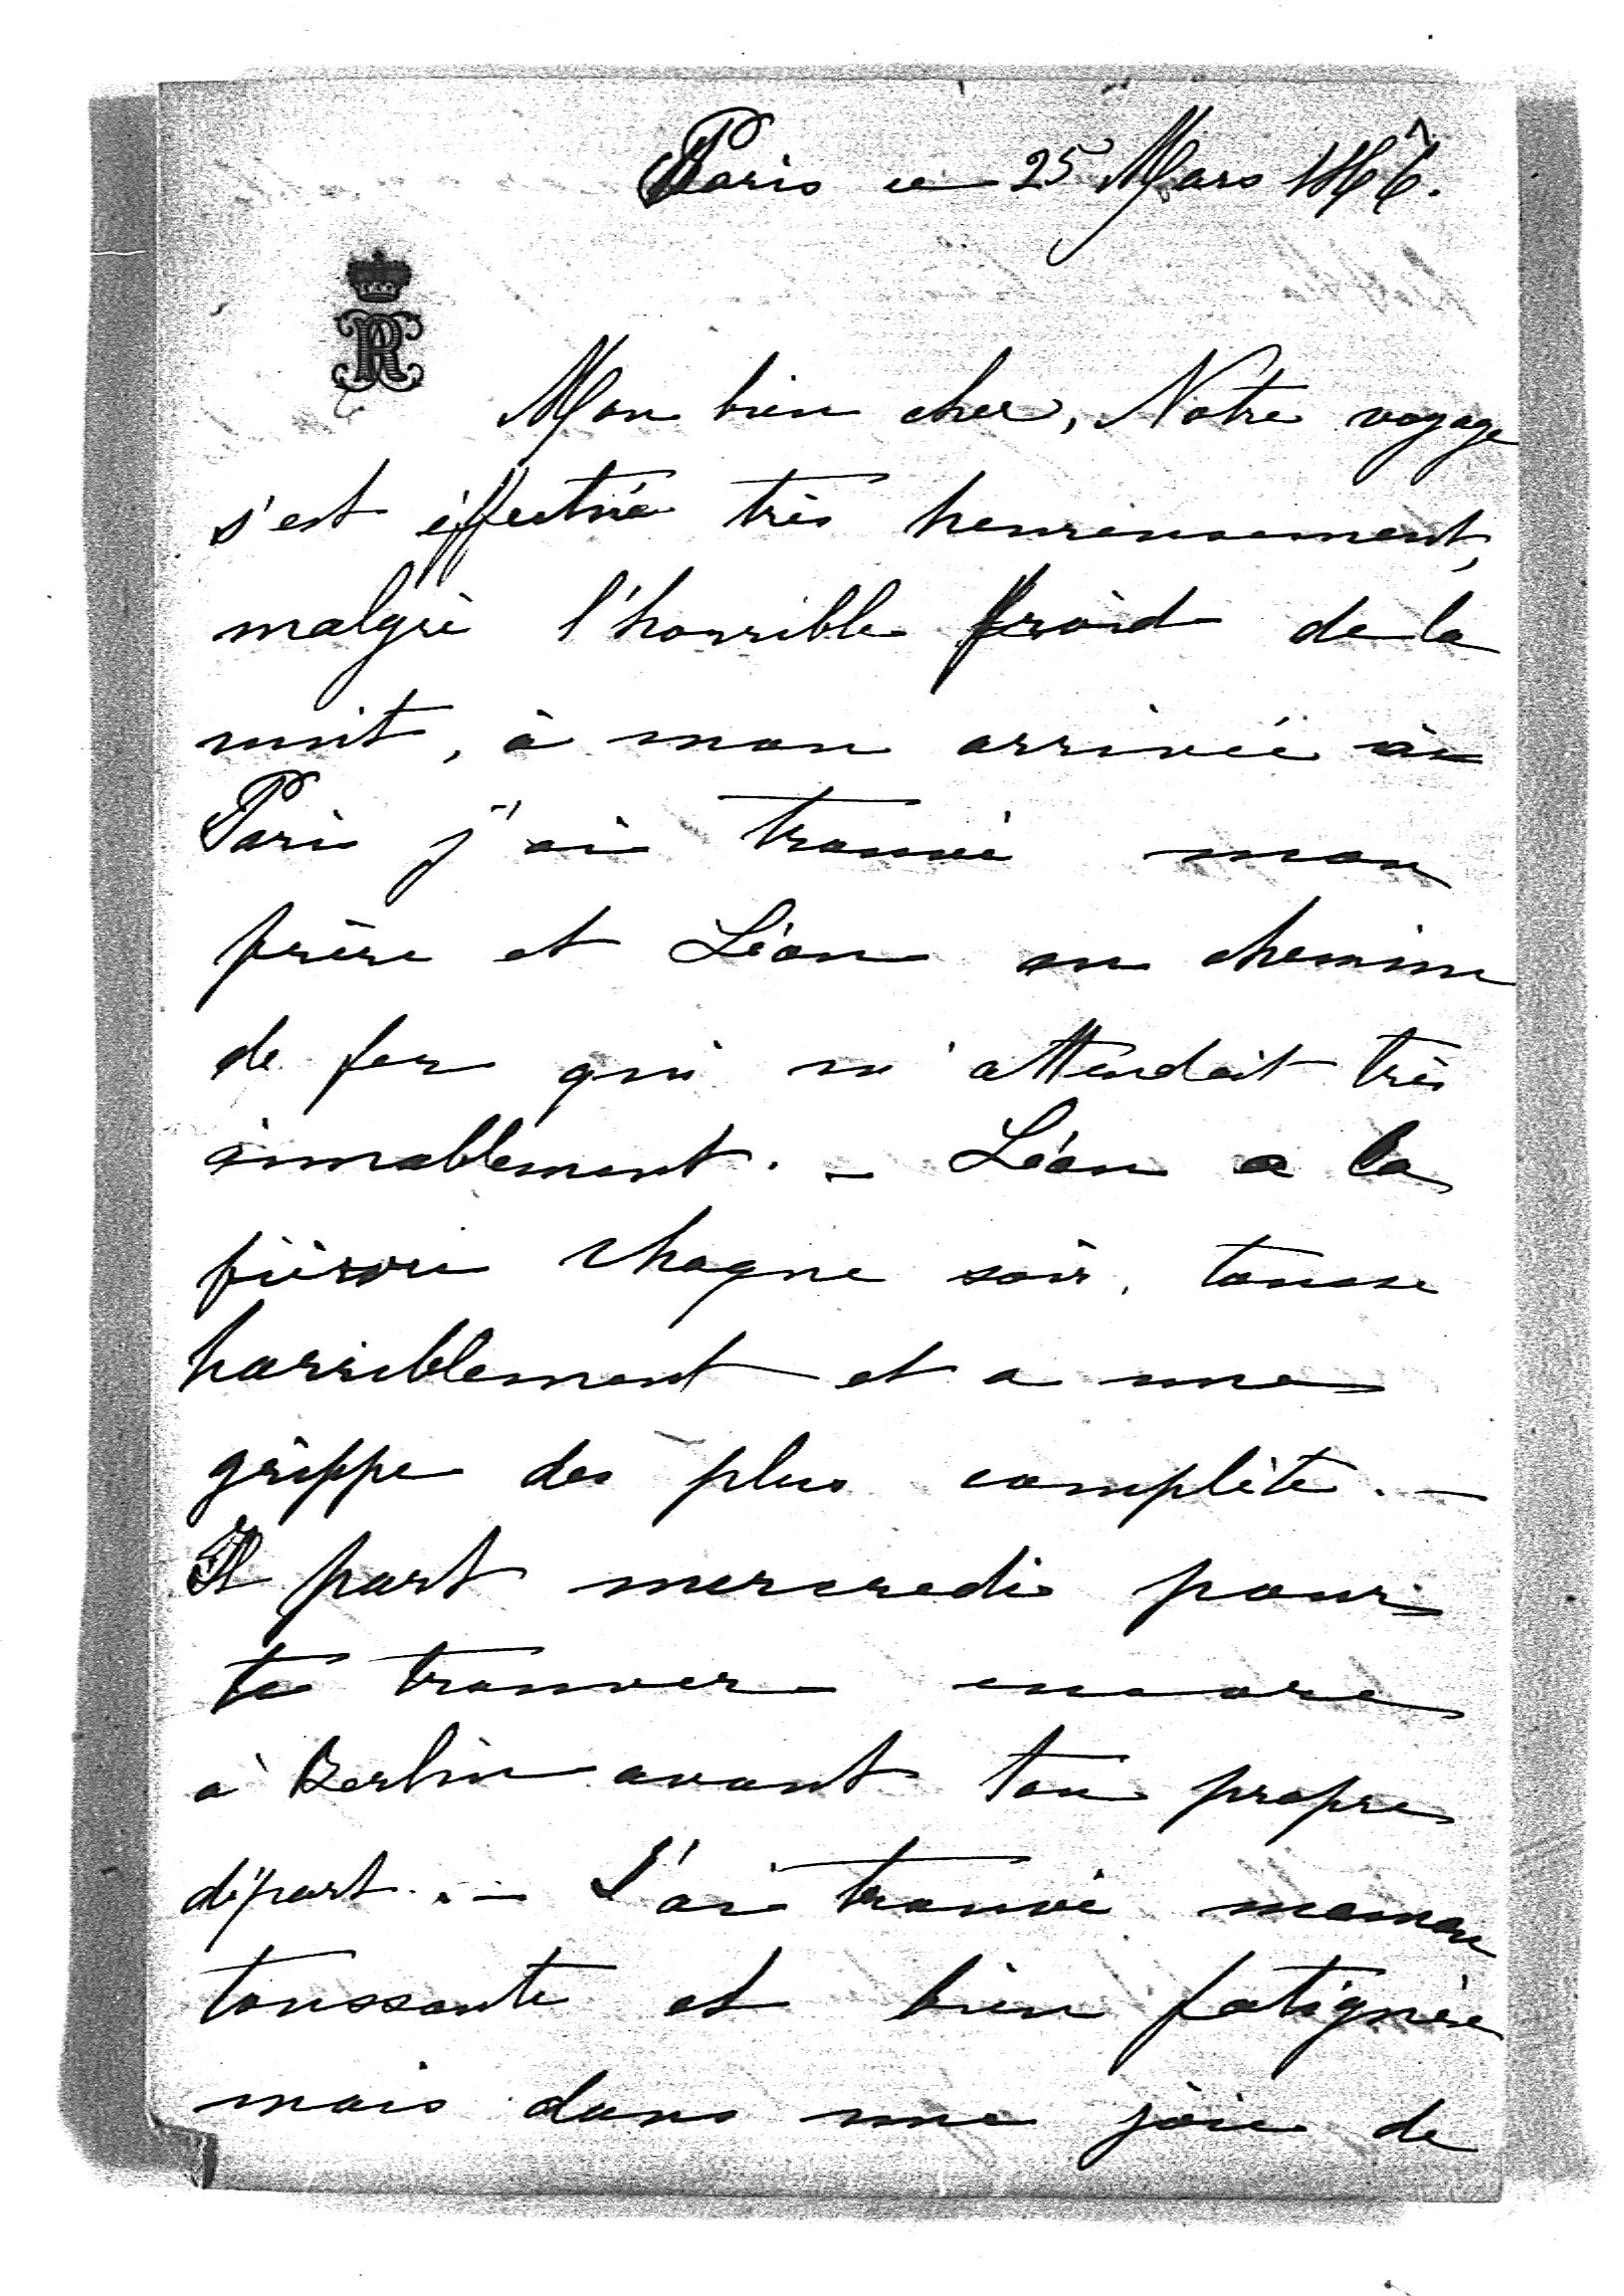 Paris ce 25 Mars 1867.
Mon bien cher, Notre voyage
s'est éffectué très heureusement,
malgré l'horrible froid de la
nuit, à mon arrivée à
Paris j'ai trouvé mon
frère et Léon au chemin
de fer qui m'attendait très
aimablement. - Léon a la
fièvre chaque soir, tousse
horriblement et a une
grippe des plus complète. -
Il part mercredi pour
te trouver encore
à Berlin avant ton propre
départ. - J'ai trouvé maman
toussante et bien fatiguée
mais dans une joie de